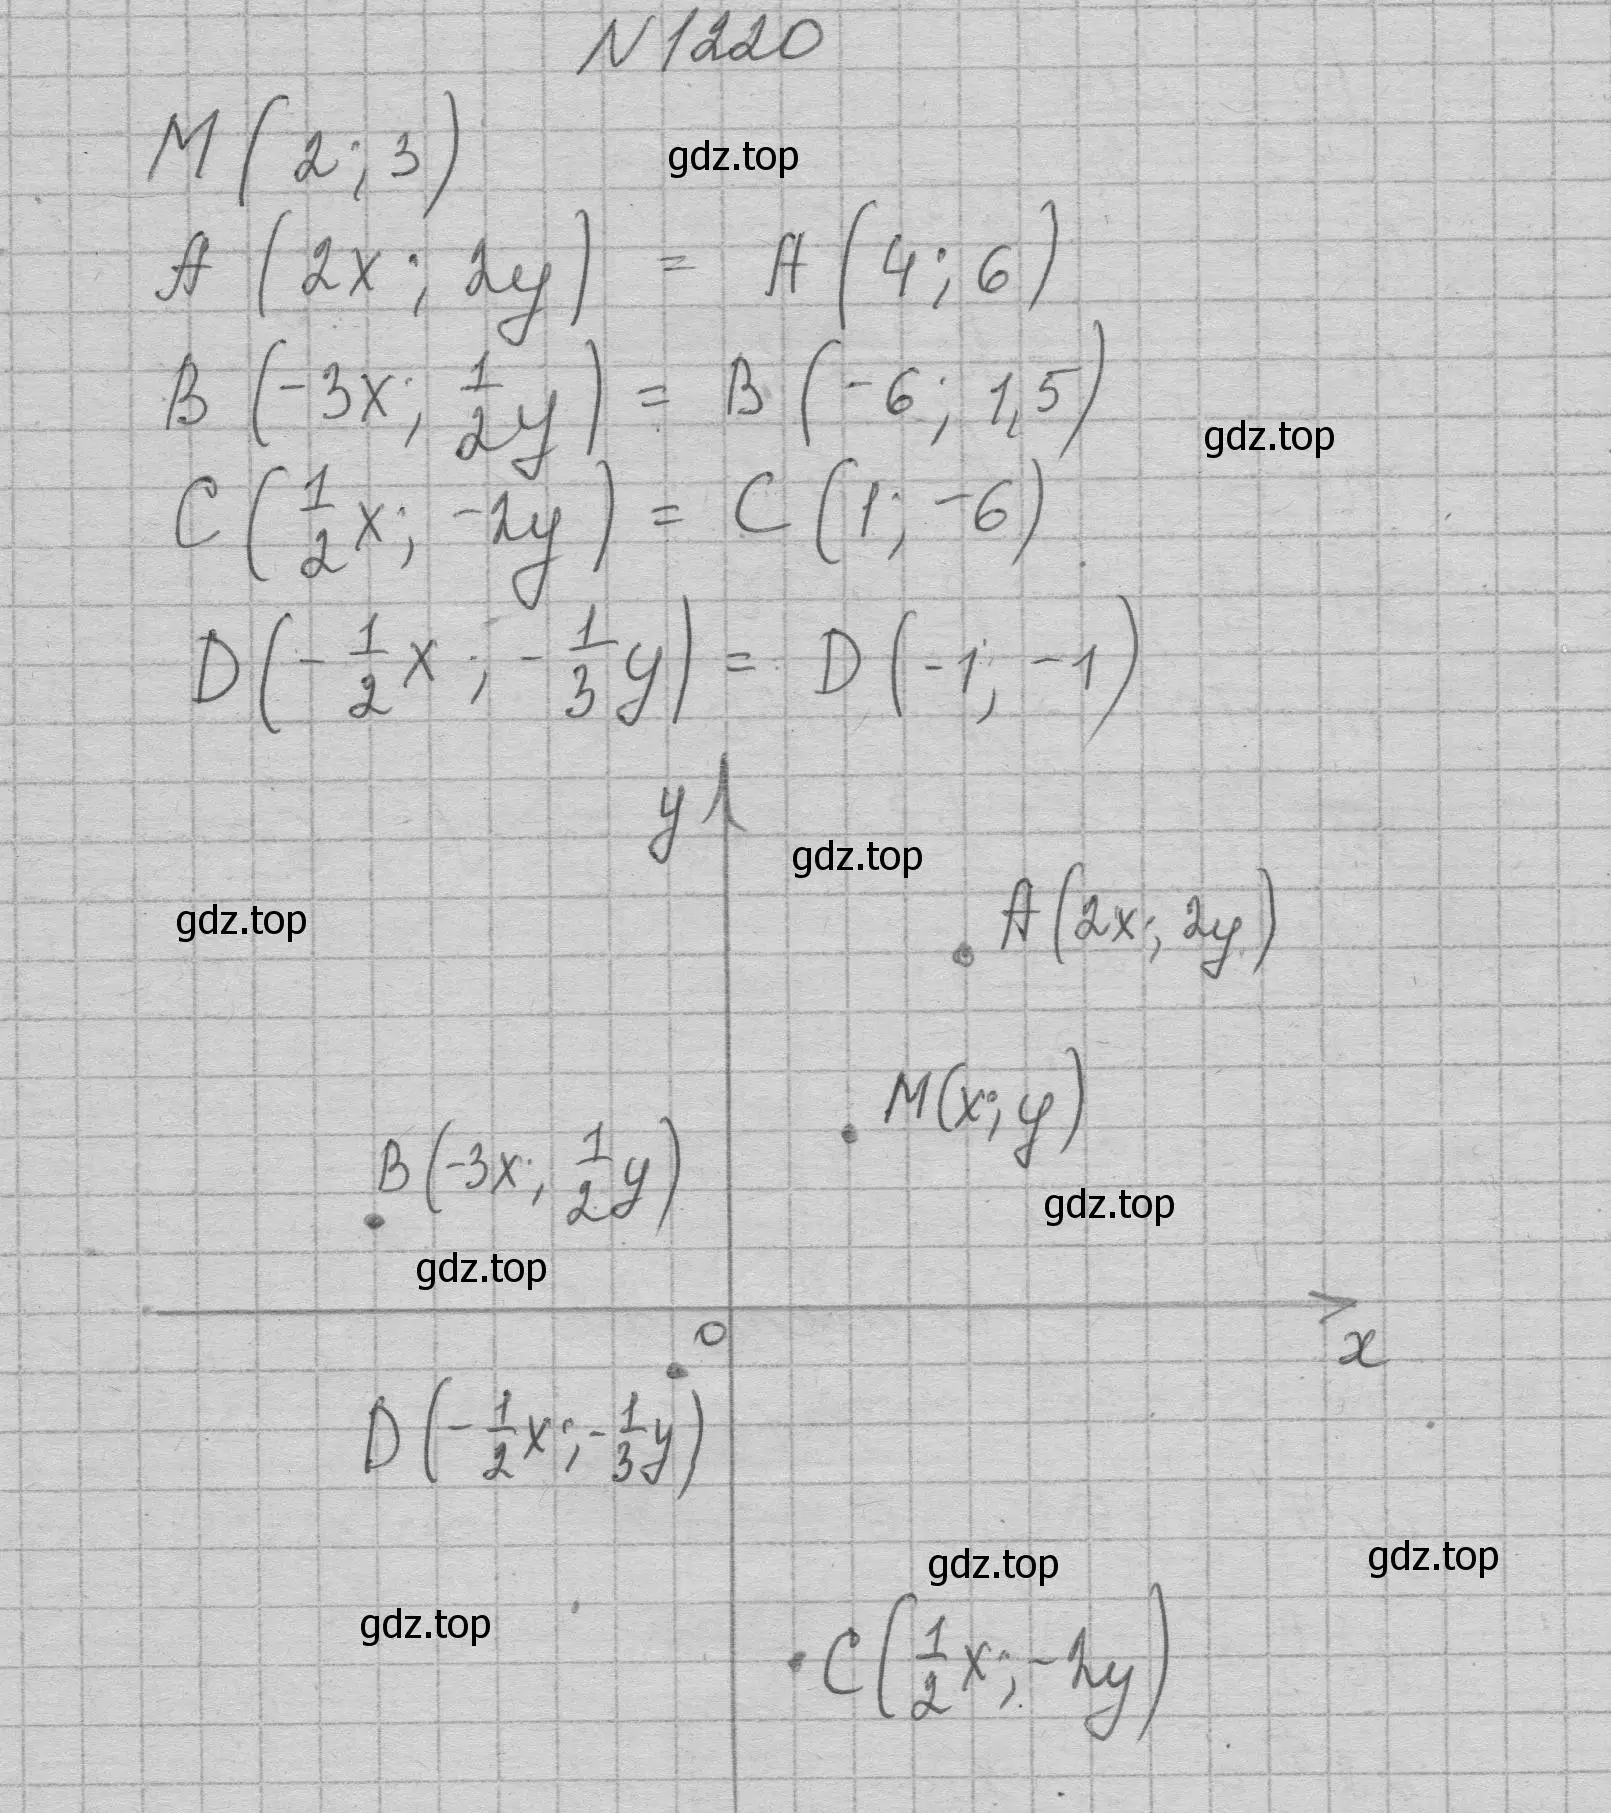 N 1220
M(2; 3)
gdz.top
A(2x; 2y) = A(4; 6)
B(-3x; 1/2 y) = B(-6; 1,5)
gdz.top
C(1/2 x; -2y) = C(1; -6)
D(-1/2 x; -1/3 y) = D(-1; -1)
y
gdz.top
gdz.top
A(2x; 2y)
M(x; y)
B(-3x; 1/2 y)
gdz.top
gdz.top
0
x
D(-1/2 x; -1/3 y)
gdz.top
gdz.top
gdz.top
C(1/2 x; -2y)